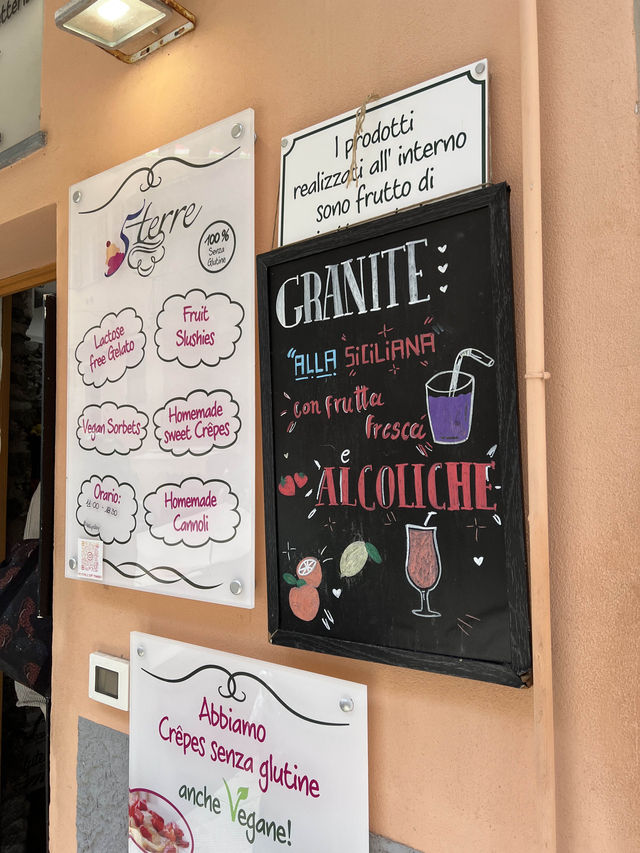 I prodotti
realizzati all' interno
sono frutto di
5terre
100%
Senza
Glutine
Lactose
free Gelato
Fruit
Slushies
Vegan Sorbets
Homemade
sweet Crêpes
Orario:
Homemade
Cannoli
GRANITE
"ALLA SICILIANA
con frutta
fresca
e
ALCOLICHE
Abbiamo
Crêpes senza glutine
anche Vegane!